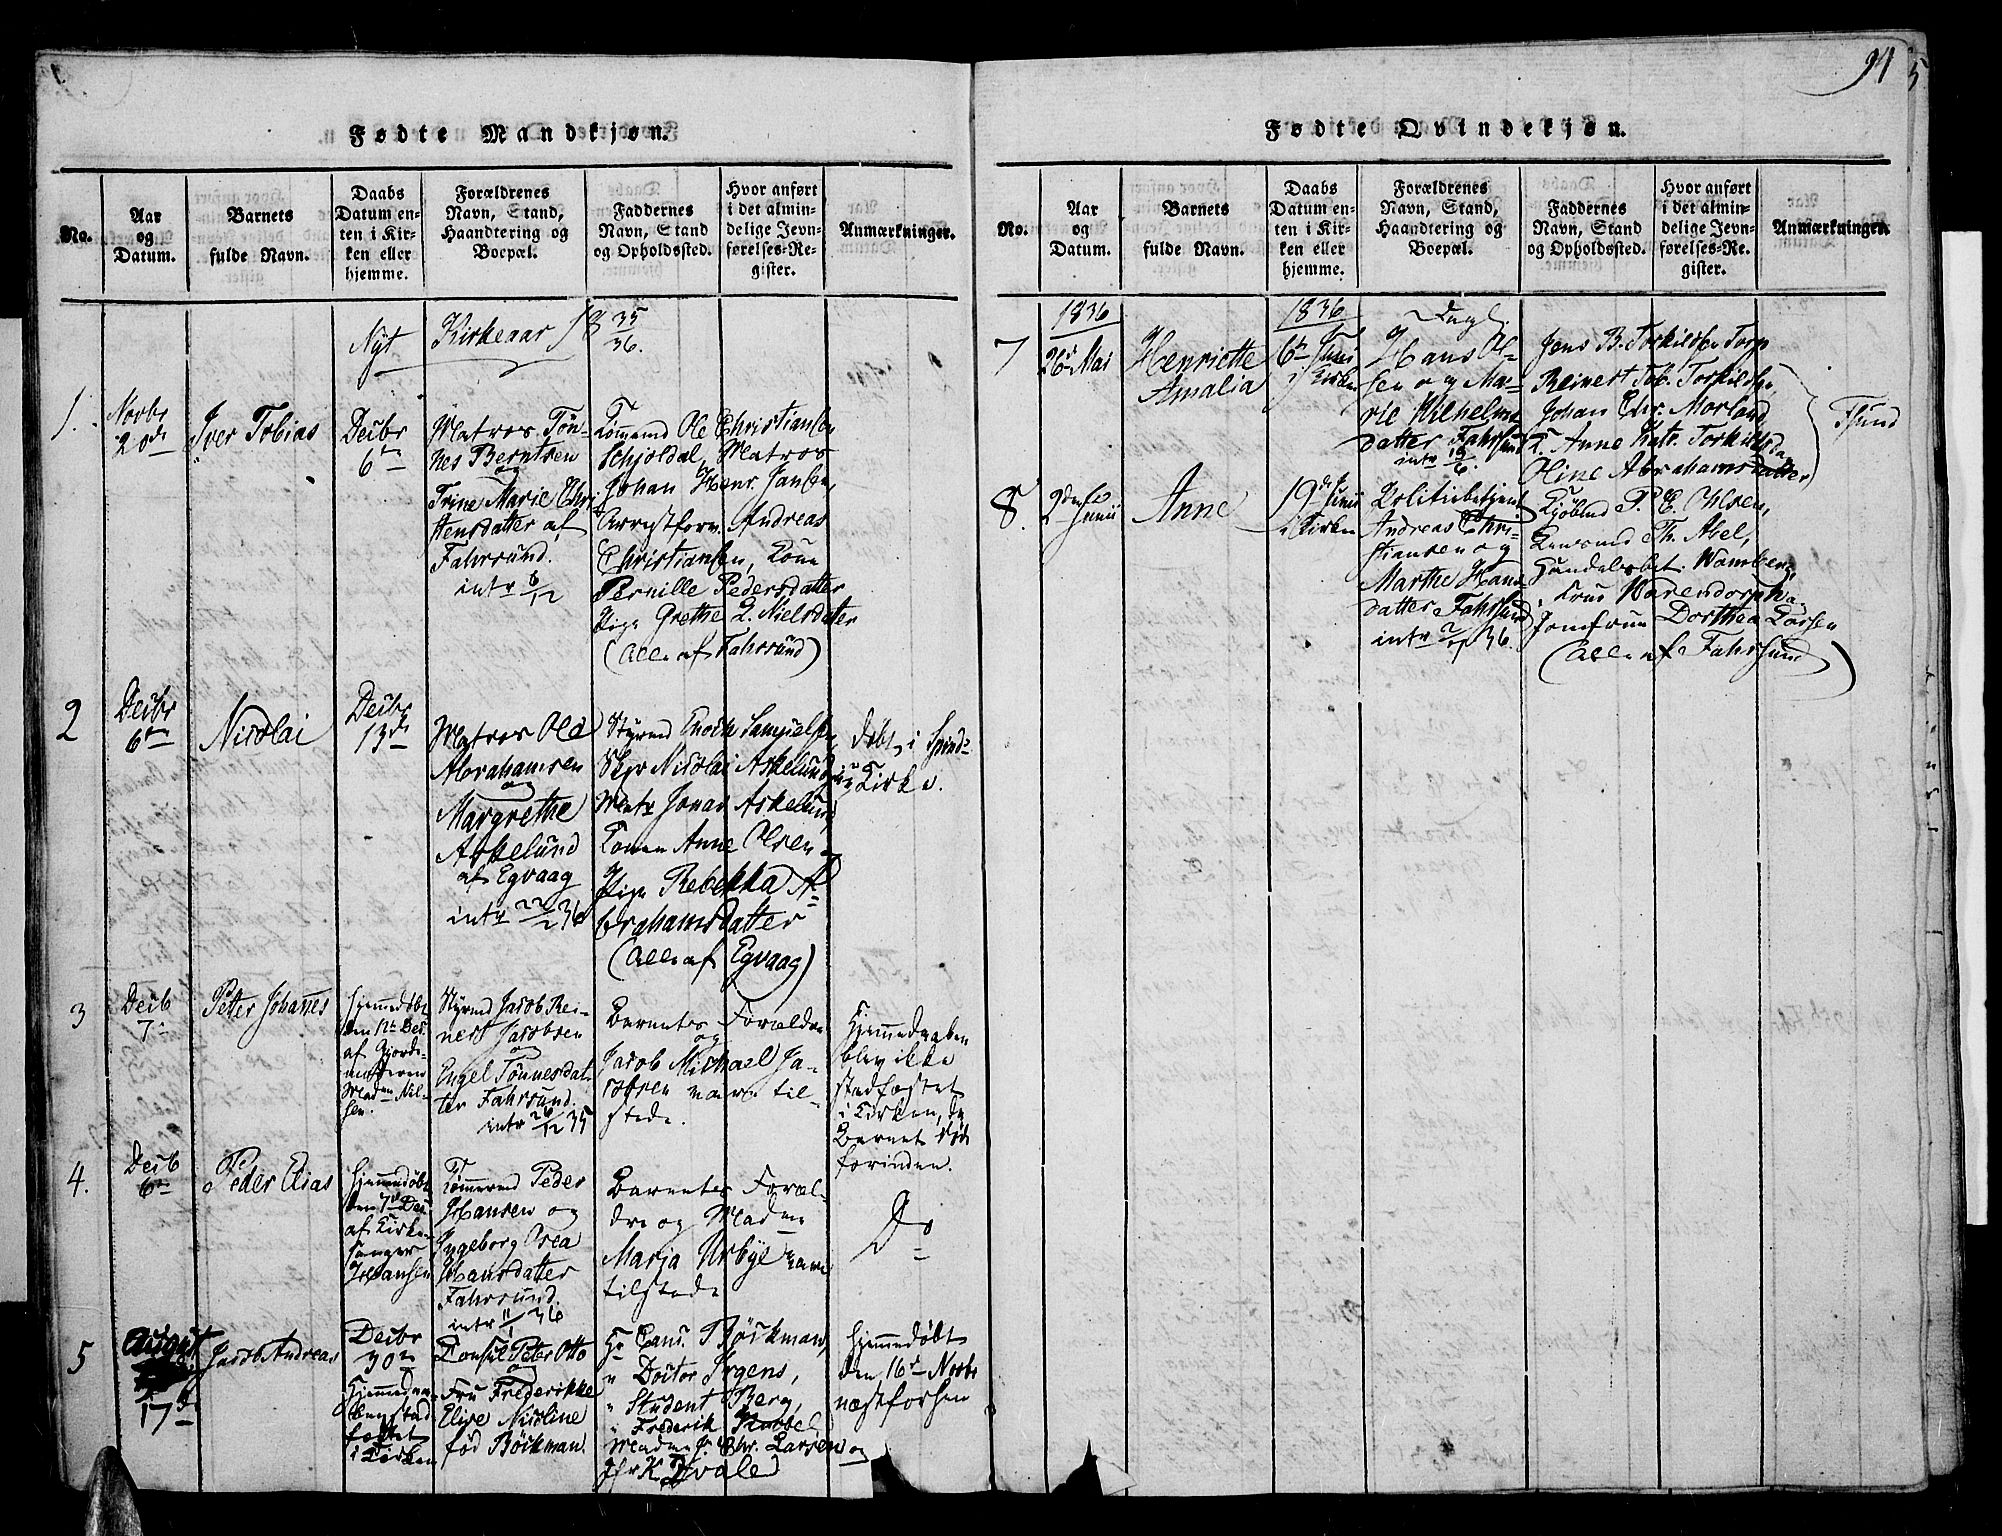 94
5
Fødte Mandkjøn.
No.
Aar
og
Datum.
Barnets
fulde Navn.
Daabs
Datum en-
ten i Kir-
ken eller
hjemme.
Forældrenes
Navn, Stand,
Haandtering og
Boepæl.
Faddernes
Navn, Stand
og Opholdssted.
Hvor anført
i det almin-
delige Jevn-
førelses-Re-
gister.
Anmærkninger.
Nyt Kirkeaar 18 35
36.
1.
Novbr
20de
Iver Tobias
Decbr
6te
Matros Tön-
nes Berntsen
og
Trine Marie Chri
stensdatter af
Fahrsund.
intr 6/12
Tömmermd Ole Christiansen
Schjoldal, Matros
Johan Henr. Jansen,
Arrestforv. Andreas
Christiansen, Kone
Pernille Pedersdatter
Pige Grethe L. Nielsdatter
(Alle af Fahrsund)
2
Decbr
6te
Nicolai
Decbr
13de
Matros Ole
Abrahamsen
og
Margrethe
Askelund
af Egvaag
intr 22/2 36
Styrmd Enoch Samuelsen
Skpr Nicolai Askelund
Matr Jonas Askelund
Konen Anne Olsen og
Pige Rebekka A-
brahamsdatter
(Alle af Egvaag)
Døbt i Spind-
Kirke.
3
Decb
7de
Petter Johannes
Hjemmedøbt
den 11te Dec.
af Gjorde-
moderen
Madm Nil-
sen.
Styrmd Jacob Rei-
nert Jacobsen
og
Engel Tönnesdat-
ter Fahrsund.
intr 26/12 35
Barnets Forældre
og
Jacob Michael Ja-
cobsen vare til-
stede.
Hjemmedaaben
blev ikke
stadfæstet
i Kirken, da
Barnet døde
forinden.
4.
Decb
6te
Peder Elias
Hjemmedøbt
den 7de Dec
af Kirke-
sanger
Johansen
Tömmermd Peder
Hansen og
Ingeborg Osea
Hansdatter
Fahrsund.
intr 11/1 36
Barnets Foræl-
dre og Madme
Maria Urbye vare
tilstede
Do
5
August
17de
Jacob Andreas
Decbr
30te
Hjemmedaa-
ben stad
fæstet
i Kirken
Consul Peter Otto
og
Fru Frederikke
Elise Nicoline
fød Böckman.
Hr Cand. Böckman,
" Doctor Irgens,
" Student Berg,
" Frederik
Madme J. Chr. Larsen og
Jfr K. Dvaled
Hjemmedøbt
den 16de Novbr
næstforhen
Fødte Qvindekjøn.
No.
Aar
og
Datum.
Barnets
fulde Navn.
Daabs
Datum en-
ten i Kir-
ken eller
hjemme.
Forældrenes
Navn, Stand,
Haandtering og
Boepæl.
Faddernes
Navn, Stand
og Opholdssted.
Hvor anført
i det almin-
delige Jevn-
førelses-Re-
gister.
Anmærkninger.
1836
1836
7
26de Mai
Henriette
Amalia
6te Juni
i Kirken
Hans Ol-
sen og Ma-
rie Wilhelms
datter Fahrsund
intr 19/6.
Jens B. Torkilsen Torp
Reinert Tob. Torkildsen,
Johan Chr. Morland
K. Anne Katr. Torkildsda
Oline Abrahamsdatter
Fsund
8.
2den
Junii
Anne
19de Junii
i Kirken
Politiebetjent
Andreas Chri-
stiansen og
Marthe Hans
datter Fahrsund
intr 36.
Kjøbmd P. E. Olsen,
Th. Abel,
Handelsbet. Wamberg,
Frue Warendorph
Jomfrue Dorthea Larsen
(Alle af Fahrsund)